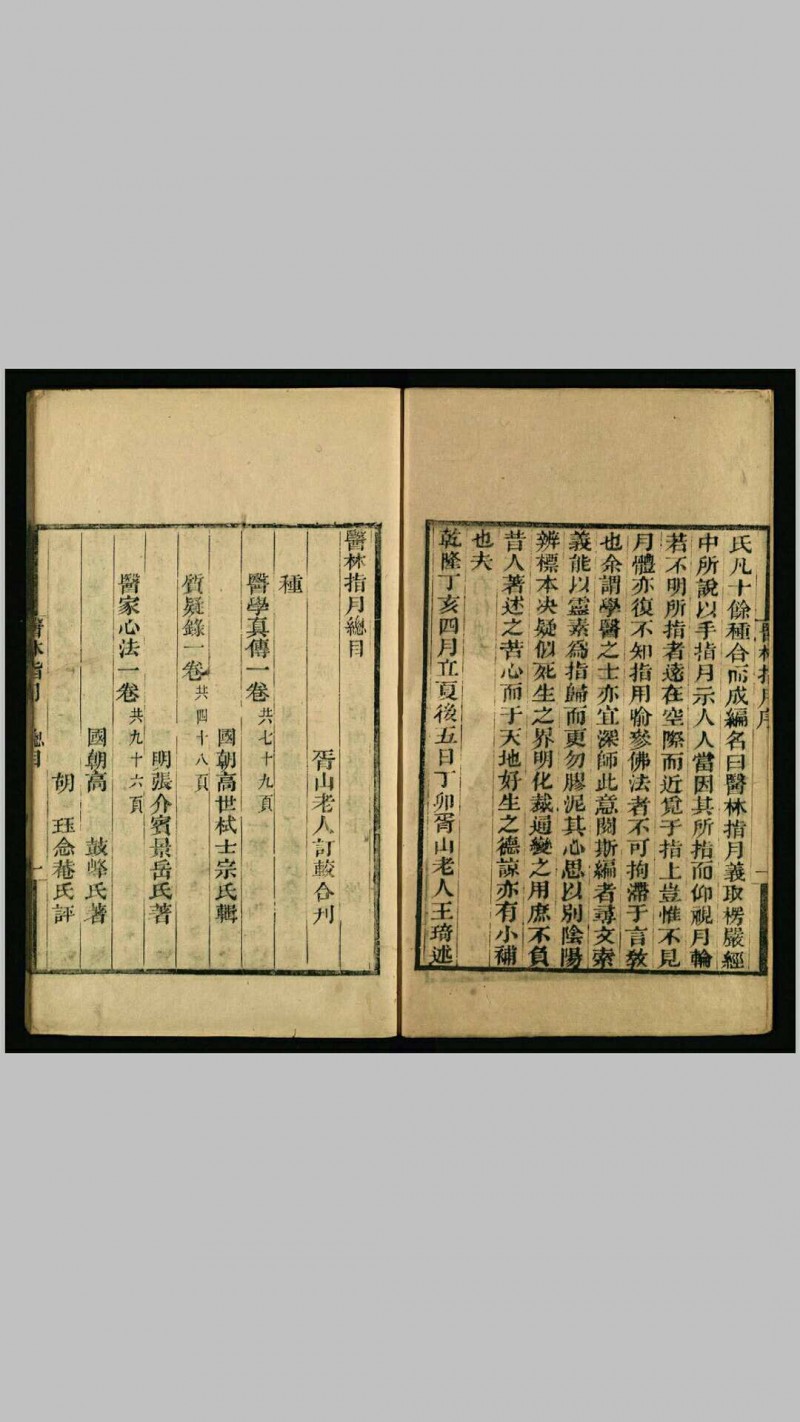 氏凡十餘種合而成編名曰醫林指月義取楞嚴經
中所說以手指月示人人當因其所指而仰視月輪
若不明所指者遠在空際而近覓于指上豈惟不見
月體亦復不知指用喻參佛法者不可拘滯于言教
也余謂學醫之士亦宜深師此意閱斯編者尋文索
義能以靈素為指歸而更勿膠泥其心思以別陰陽
辨標本决疑似死生之界明化裁通變之用庶不負
昔人著述之苦心而于天地好生之德諒亦有小補
也夫
乾隆丁亥四月立夏後五日丁卯胥山老人王琦述
醫林指月總目
胥山老人訂較合刊
種
醫學真傳一卷共七十九頁
國朝高世栻士宗氏輯
質疑錄一卷共四十八頁
明張介賓景岳氏著
醫家心法一卷共九十六頁
國朝高 鼓峰氏著
胡 珏念菴氏評
醫林指月 總目 一